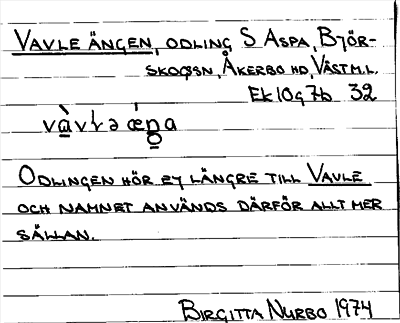 VAVLE ÄNGEN, ODLING S ASPA, BJÖR-
SKOGSN, ÅKERBO HD, VÄSTM.L.
EK 10G7b 32
ODLINGEN HÖR EJ LÄNGRE TILL VAVLE
OCH NAMNET ANVÄNDS DÄRFÖR ALLT MER
SÄLLAN.
BIRGITTA NURBO 1974